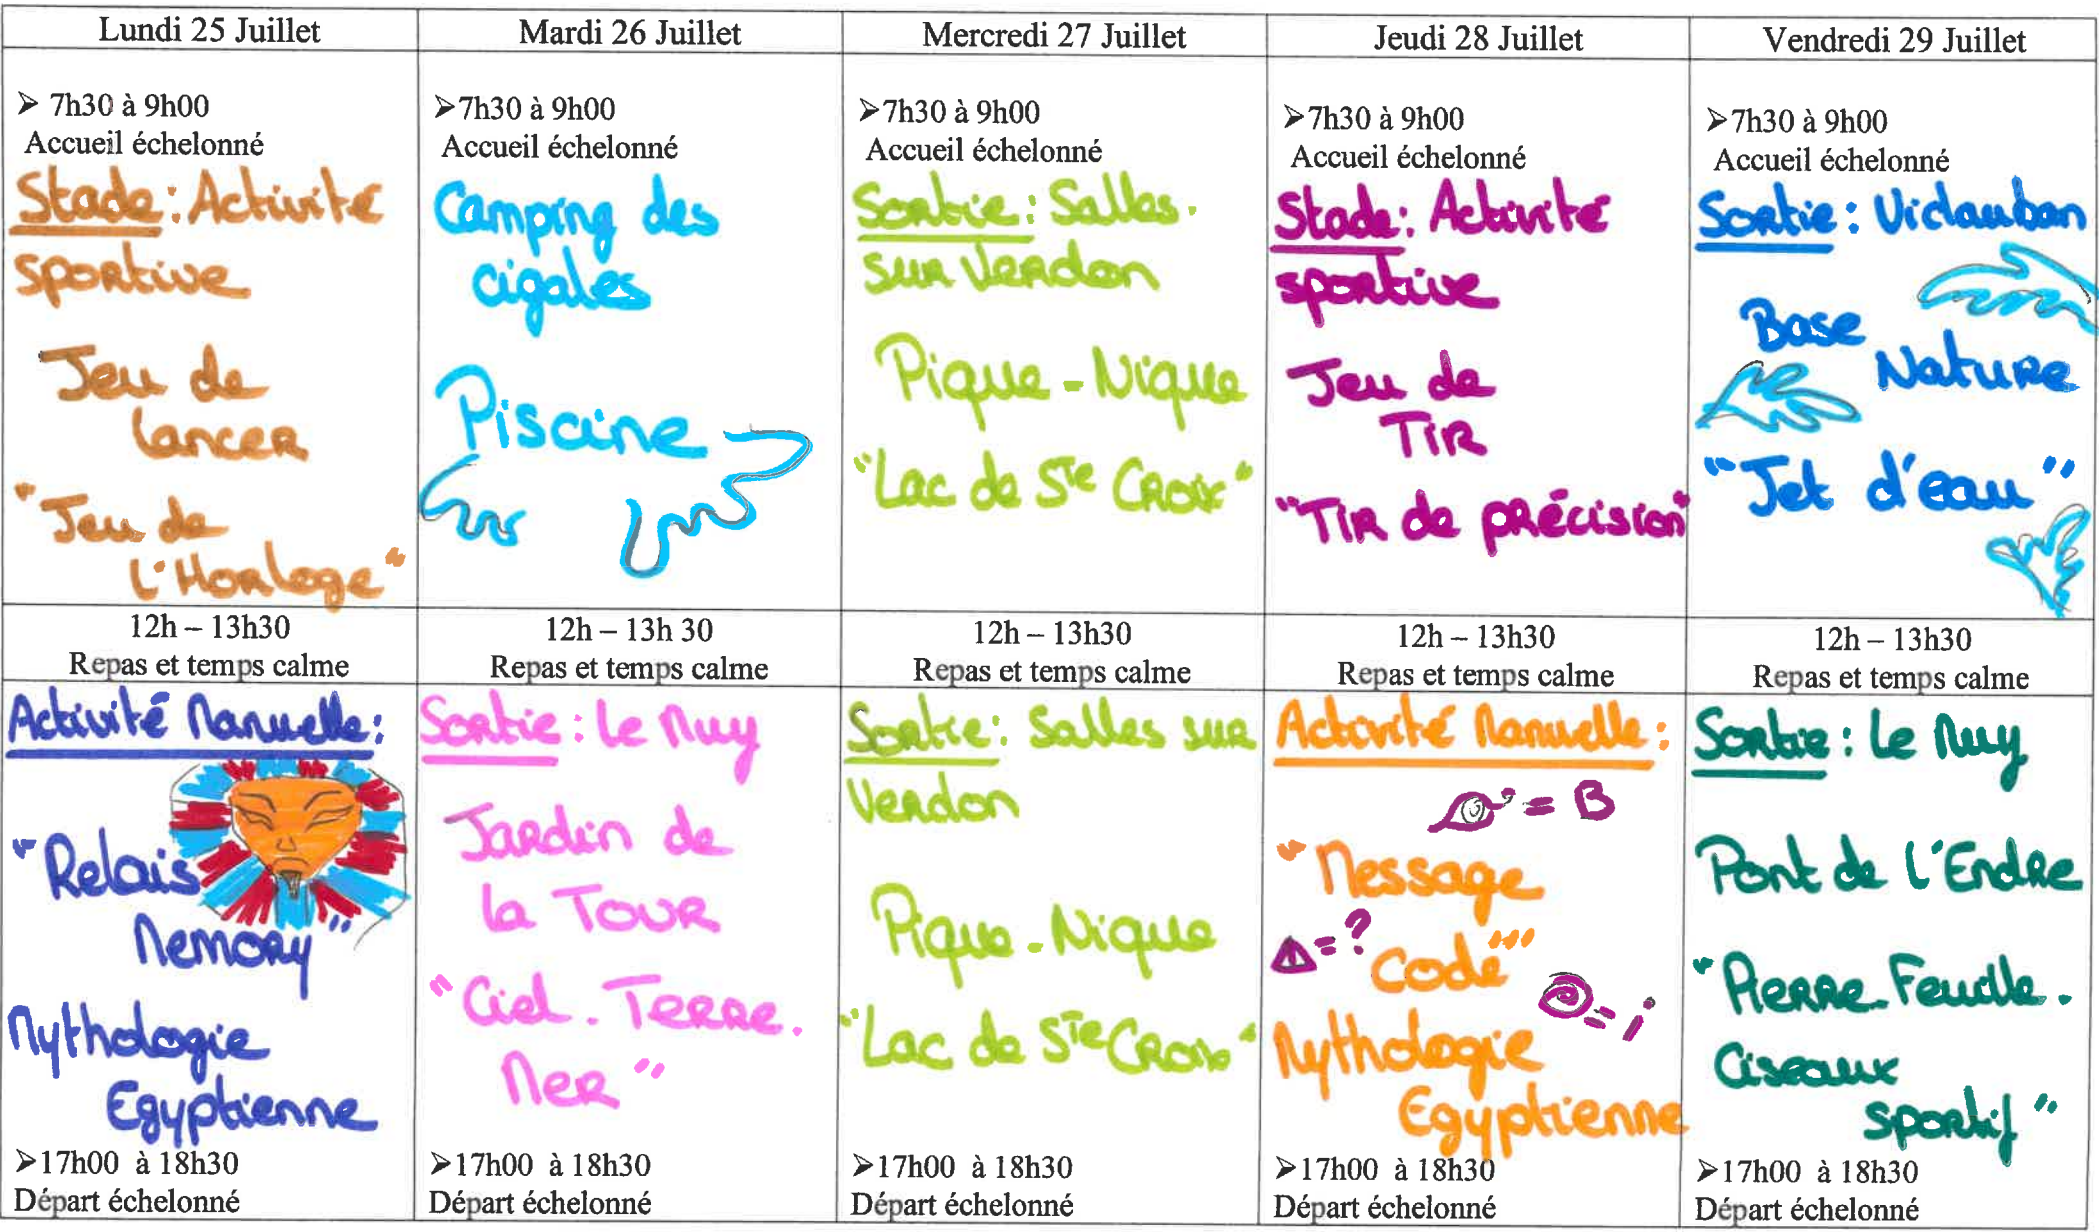 Lundi 25 Juillet
Mardi 26 Juillet
Mercredi 27 Juillet
Jeudi 28 Juillet
Vendredi 29 Juillet
➢ 7h30 à 9h00
Accueil échelonné
Stade : Activité
sportive
Jeu de
lancer
"Jeu de
l'Horloge"
➢7h30 à 9h00
Accueil échelonné
Camping des
cigales
Piscine
➢7h30 à 9h00
Accueil échelonné
Sortie : Salles.
sur Verdon
Pique-Nique
"Lac de Ste Croix"
➢7h30 à 9h00
Accueil échelonné
Stade : Activité
sportive
Jeu de
Tir
"Tir de précision"
➢7h30 à 9h00
Accueil échelonné
Sortie : Vidauban
Base
Nature
"Jet d'eau"
12h – 13h30
Repas et temps calme
12h – 13h 30
Repas et temps calme
12h – 13h30
Repas et temps calme
12h – 13h30
Repas et temps calme
12h – 13h30
Repas et temps calme
Activité Manuelle :
"Relais
Memory"
Mythologie
Egyptienne
➢17h00 à 18h30
Départ échelonné
Sortie : Le Muy
Jardin de
la Tour
"Ciel. Terre.
Mer"
➢17h00 à 18h30
Départ échelonné
Sortie : Salles sur
Verdon
Pique-Nique
"Lac de Ste Croix"
➢17h00 à 18h30
Départ échelonné
Activité Manuelle :
= B
"Message
= ?
Code"
= i
Mythologie
Egyptienne
➢17h00 à 18h30
Départ échelonné
Sortie : Le Muy
Pont de l'Endre
"Pierre-Feuille.
Ciseaux
sportif"
➢17h00 à 18h30
Départ échelonné